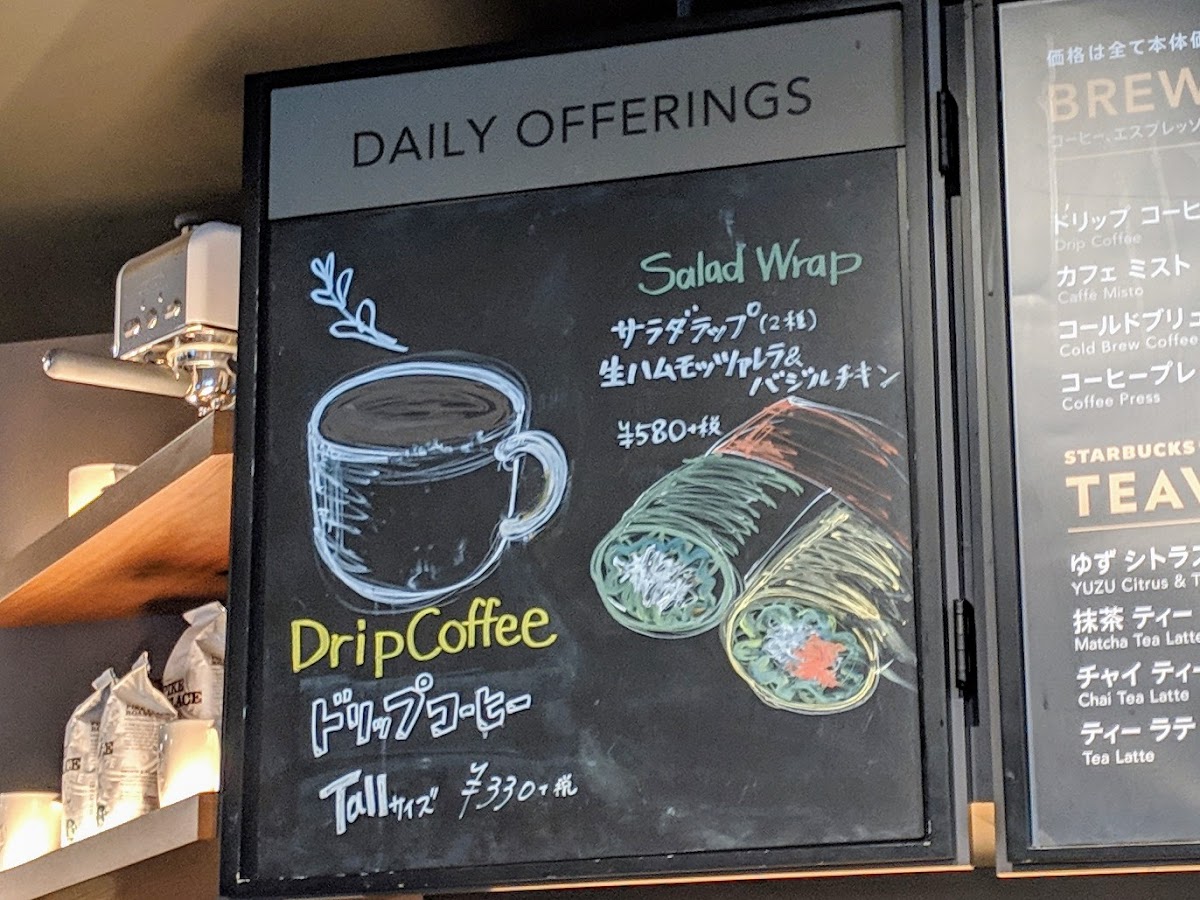 DAILY OFFERINGS
Salad Wrap
サラダラップ(2種)
生ハムモッツァレラ&
バジルチキン
¥580+税
Drip Coffee
ドリップコーヒー
Tallサイズ ¥330+税
価格は全て本体価
BREW
コーヒー、エスプレッソ
ドリップ コーヒ
Drip Coffee
カフェ ミスト
Caffè Misto
コールドブリュ
Cold Brew Coffee
コーヒープレ
Coffee Press
STARBUCKS
TEAV
ゆず シトラス
YUZU Citrus & T
抹茶 ティー
Matcha Tea Latte
チャイ ティー
Chai Tea Latte
ティー ラテ
Tea Latte
PIKE
PLACE